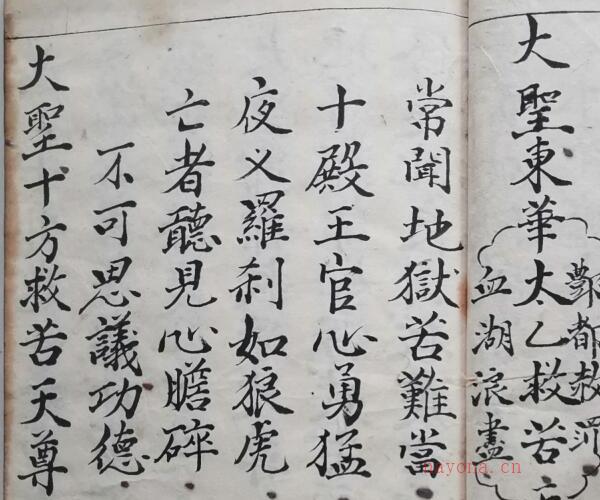 大聖東華太乙救苦
酆都赦
血湖浪盡
常聞地獄苦難當
十殿王官心勇猛
夜义羅刹如狼虎
亡者聽見心膽碎
不可思議功德
大聖十方救苦天尊
nayona.cn